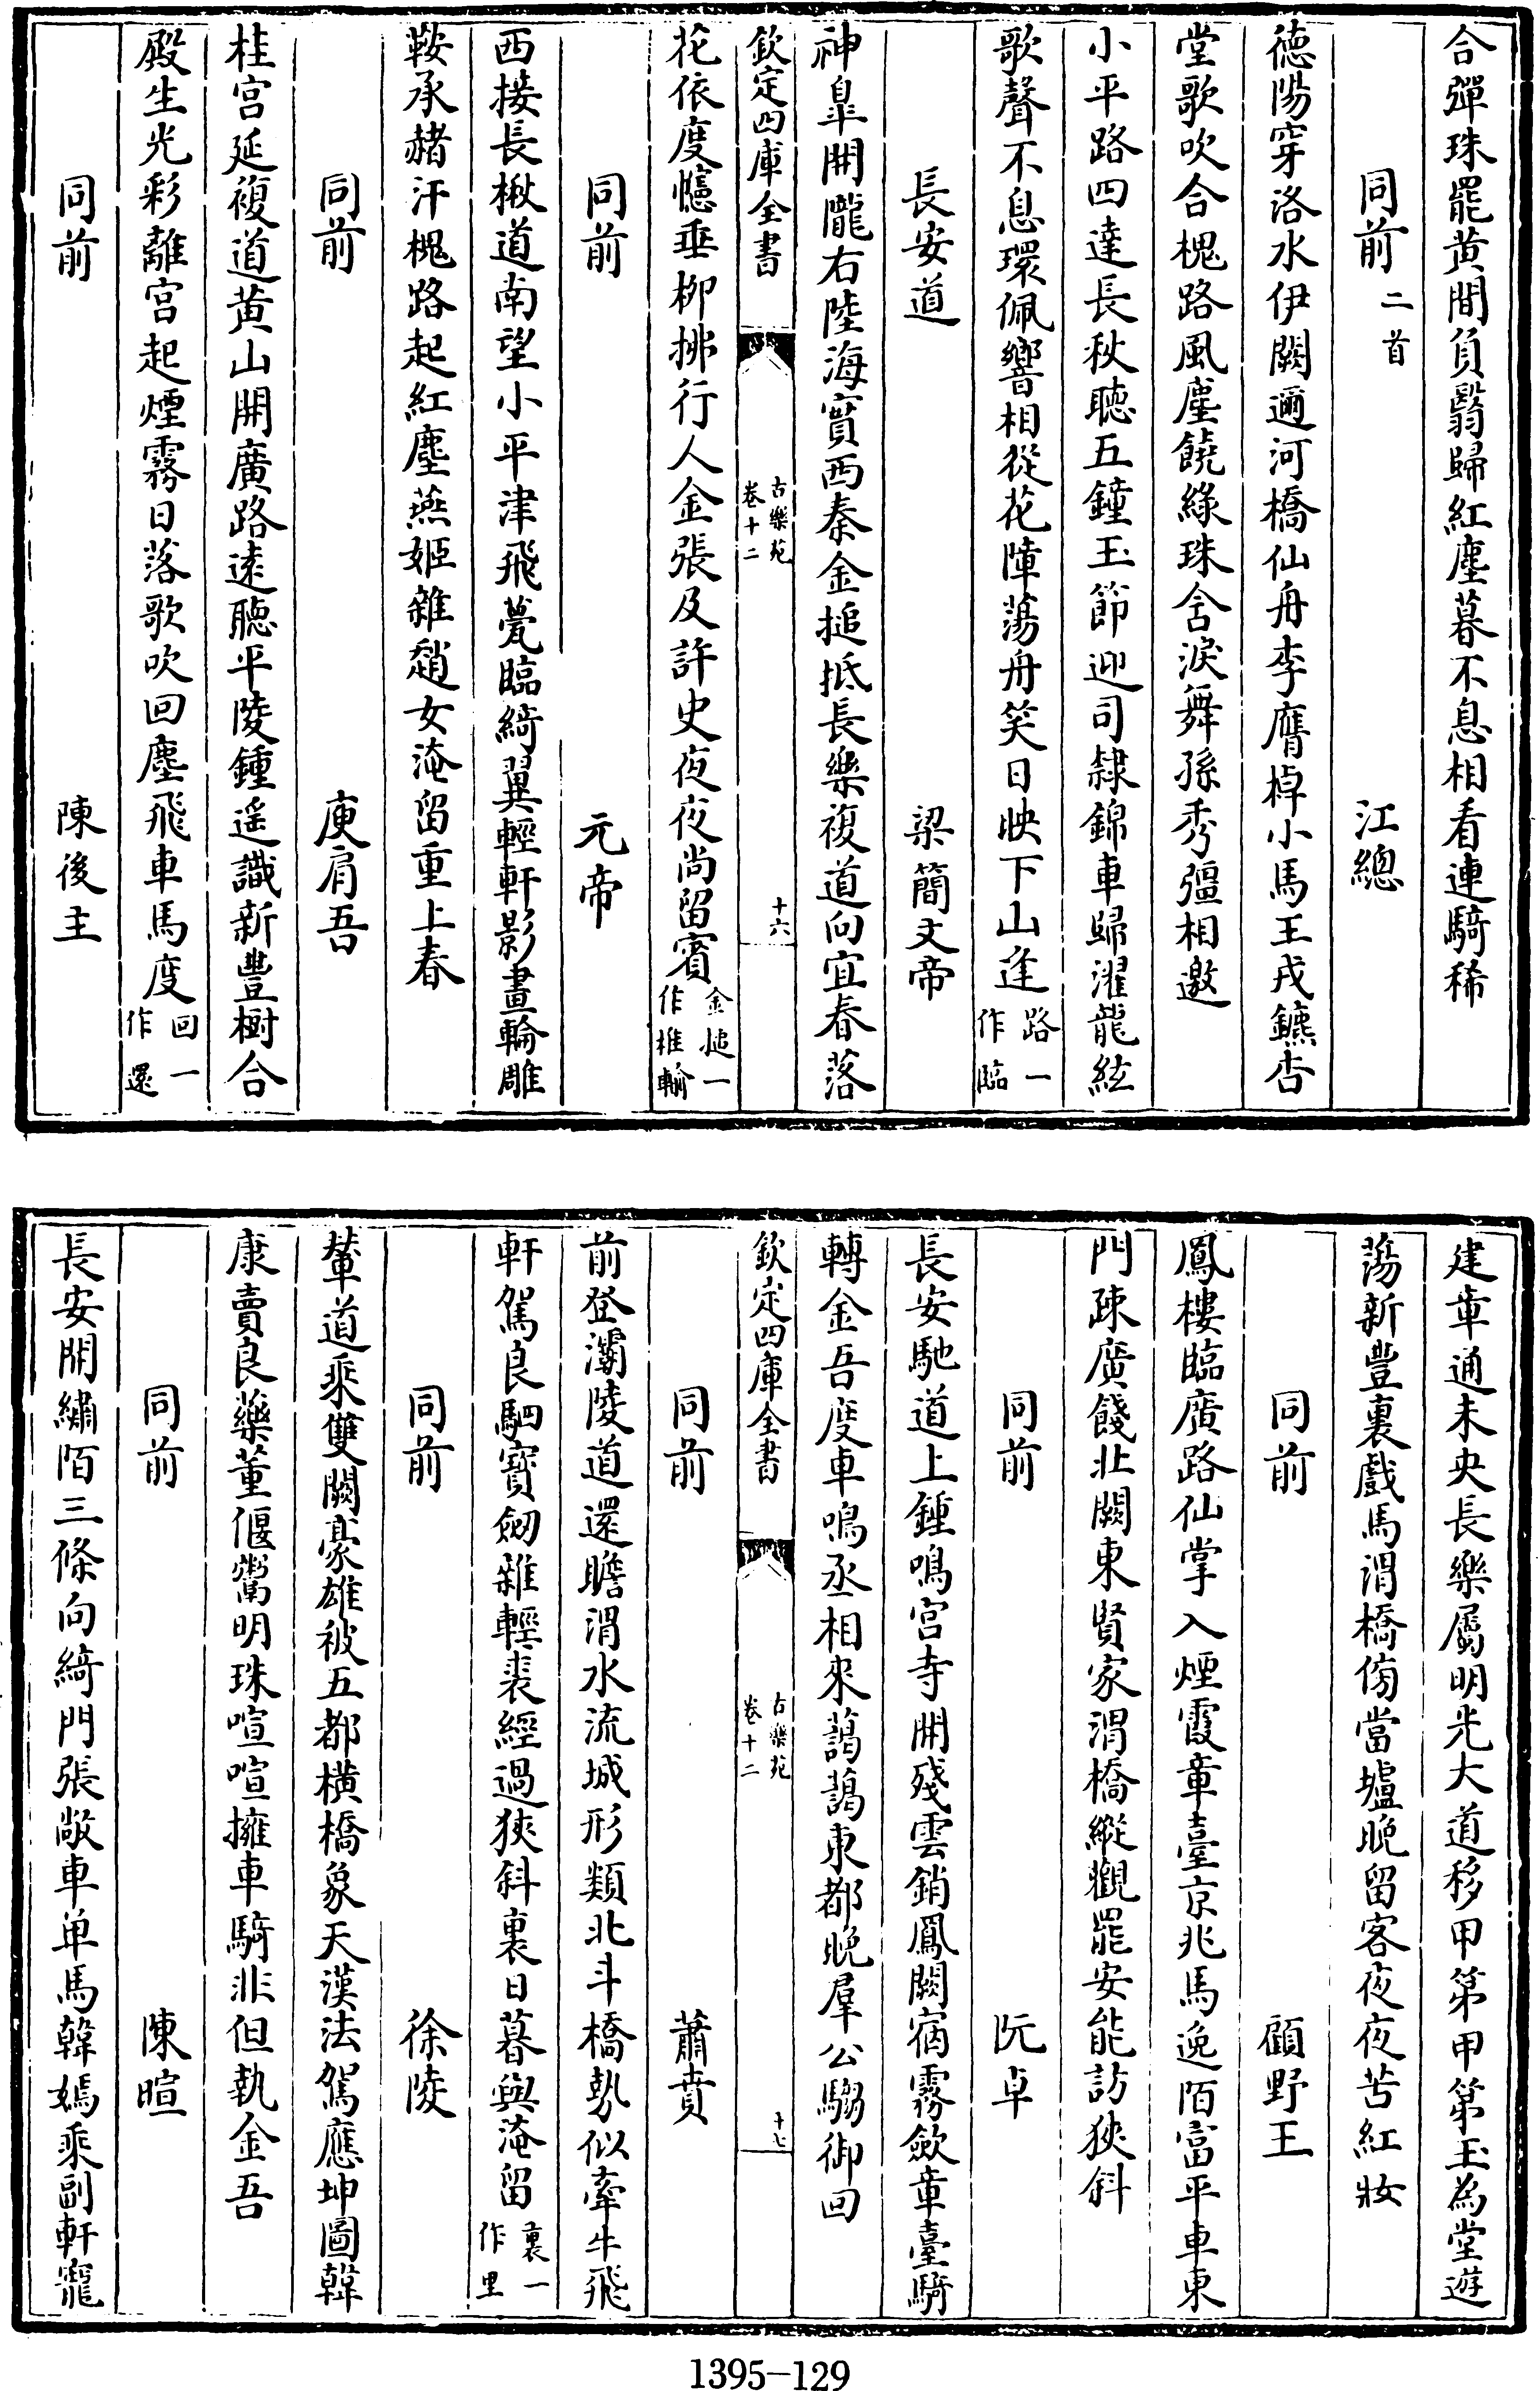 合彈珠罷黄間負翳歸紅塵暮不息相看連騎稀
同前二首 江總
德陽穿洛水伊闕邇河橋仙舟李膺棹小馬王戎鑣杏
堂歌吹合槐路風塵饒綠珠含淚舞孫秀彊相邀
小平路四達長秋聽五鐘玉節迎司隸錦車歸濯龍絃
歌聲不息環佩響相從花障蕩舟笑日映下山逢路一作臨
長安道 梁簡文帝
神臯開隴右陸海實西秦金搥抵長樂複道向宜春落
欽定四庫全書 古樂苑卷十二 十六
花依度幰垂柳拂行人金張及許史夜夜尚留賓金搥一作椎輪
同前 元帝
西接長楸道南望小平津飛甍臨綺翼輕軒影畫輪雕
鞍承赭汗槐路起紅塵燕姬雜趙女淹留重上春
同前 庾肩吾
桂宮延複道黄山開廣路遠聽平陵鍾遥識新豐樹合
殿生光彩離宮起煙霧日落歌吹回塵飛車馬度回一作還
同前 陳後主
建章通未央長樂屬明光大道移甲第甲第玉為堂遊
蕩新豐裏戲馬渭橋傍當壚晚留客夜夜苦紅妝
同前 顧野王
鳳樓臨廣路仙掌入煙霞章臺京兆馬逸陌富平車東
門疎廣餞北闕東賢家渭橋縱觀罷安能訪狹斜
同前 阮卓
長安馳道上鍾鳴宮寺開殘雲銷鳳闕宿霧斂章臺騎
轉金吾度車鳴丞相來藹藹東都晚羣公騶御回
欽定四庫全書 古樂苑卷十二 十七
同前 蕭賁
前登灞陵道還瞻渭水流城形類北斗橋勢似牽牛飛
軒駕良駟寶劒雜輕裘經過狹斜裏日暮與淹留裏一作里
同前 徐陵
輦道乘雙闕豪雄被五都橫橋象天漢法駕應坤圖韓
康賣良藥董偃鬻明珠喧喧擁車騎非但執金吾
同前 陳暄
長安開繡陌三條向綺門張敞車单馬韓嫣乘副軒寵
1395-129